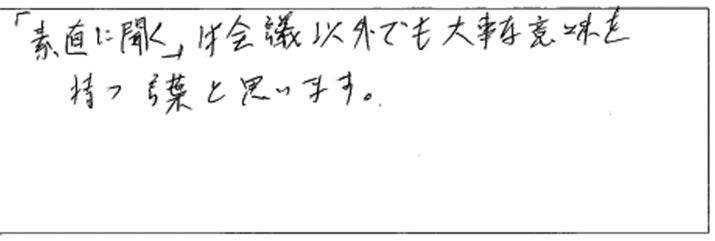 「素直に聞く」は会議以外でも大事な意味を
持つ言葉と思います。